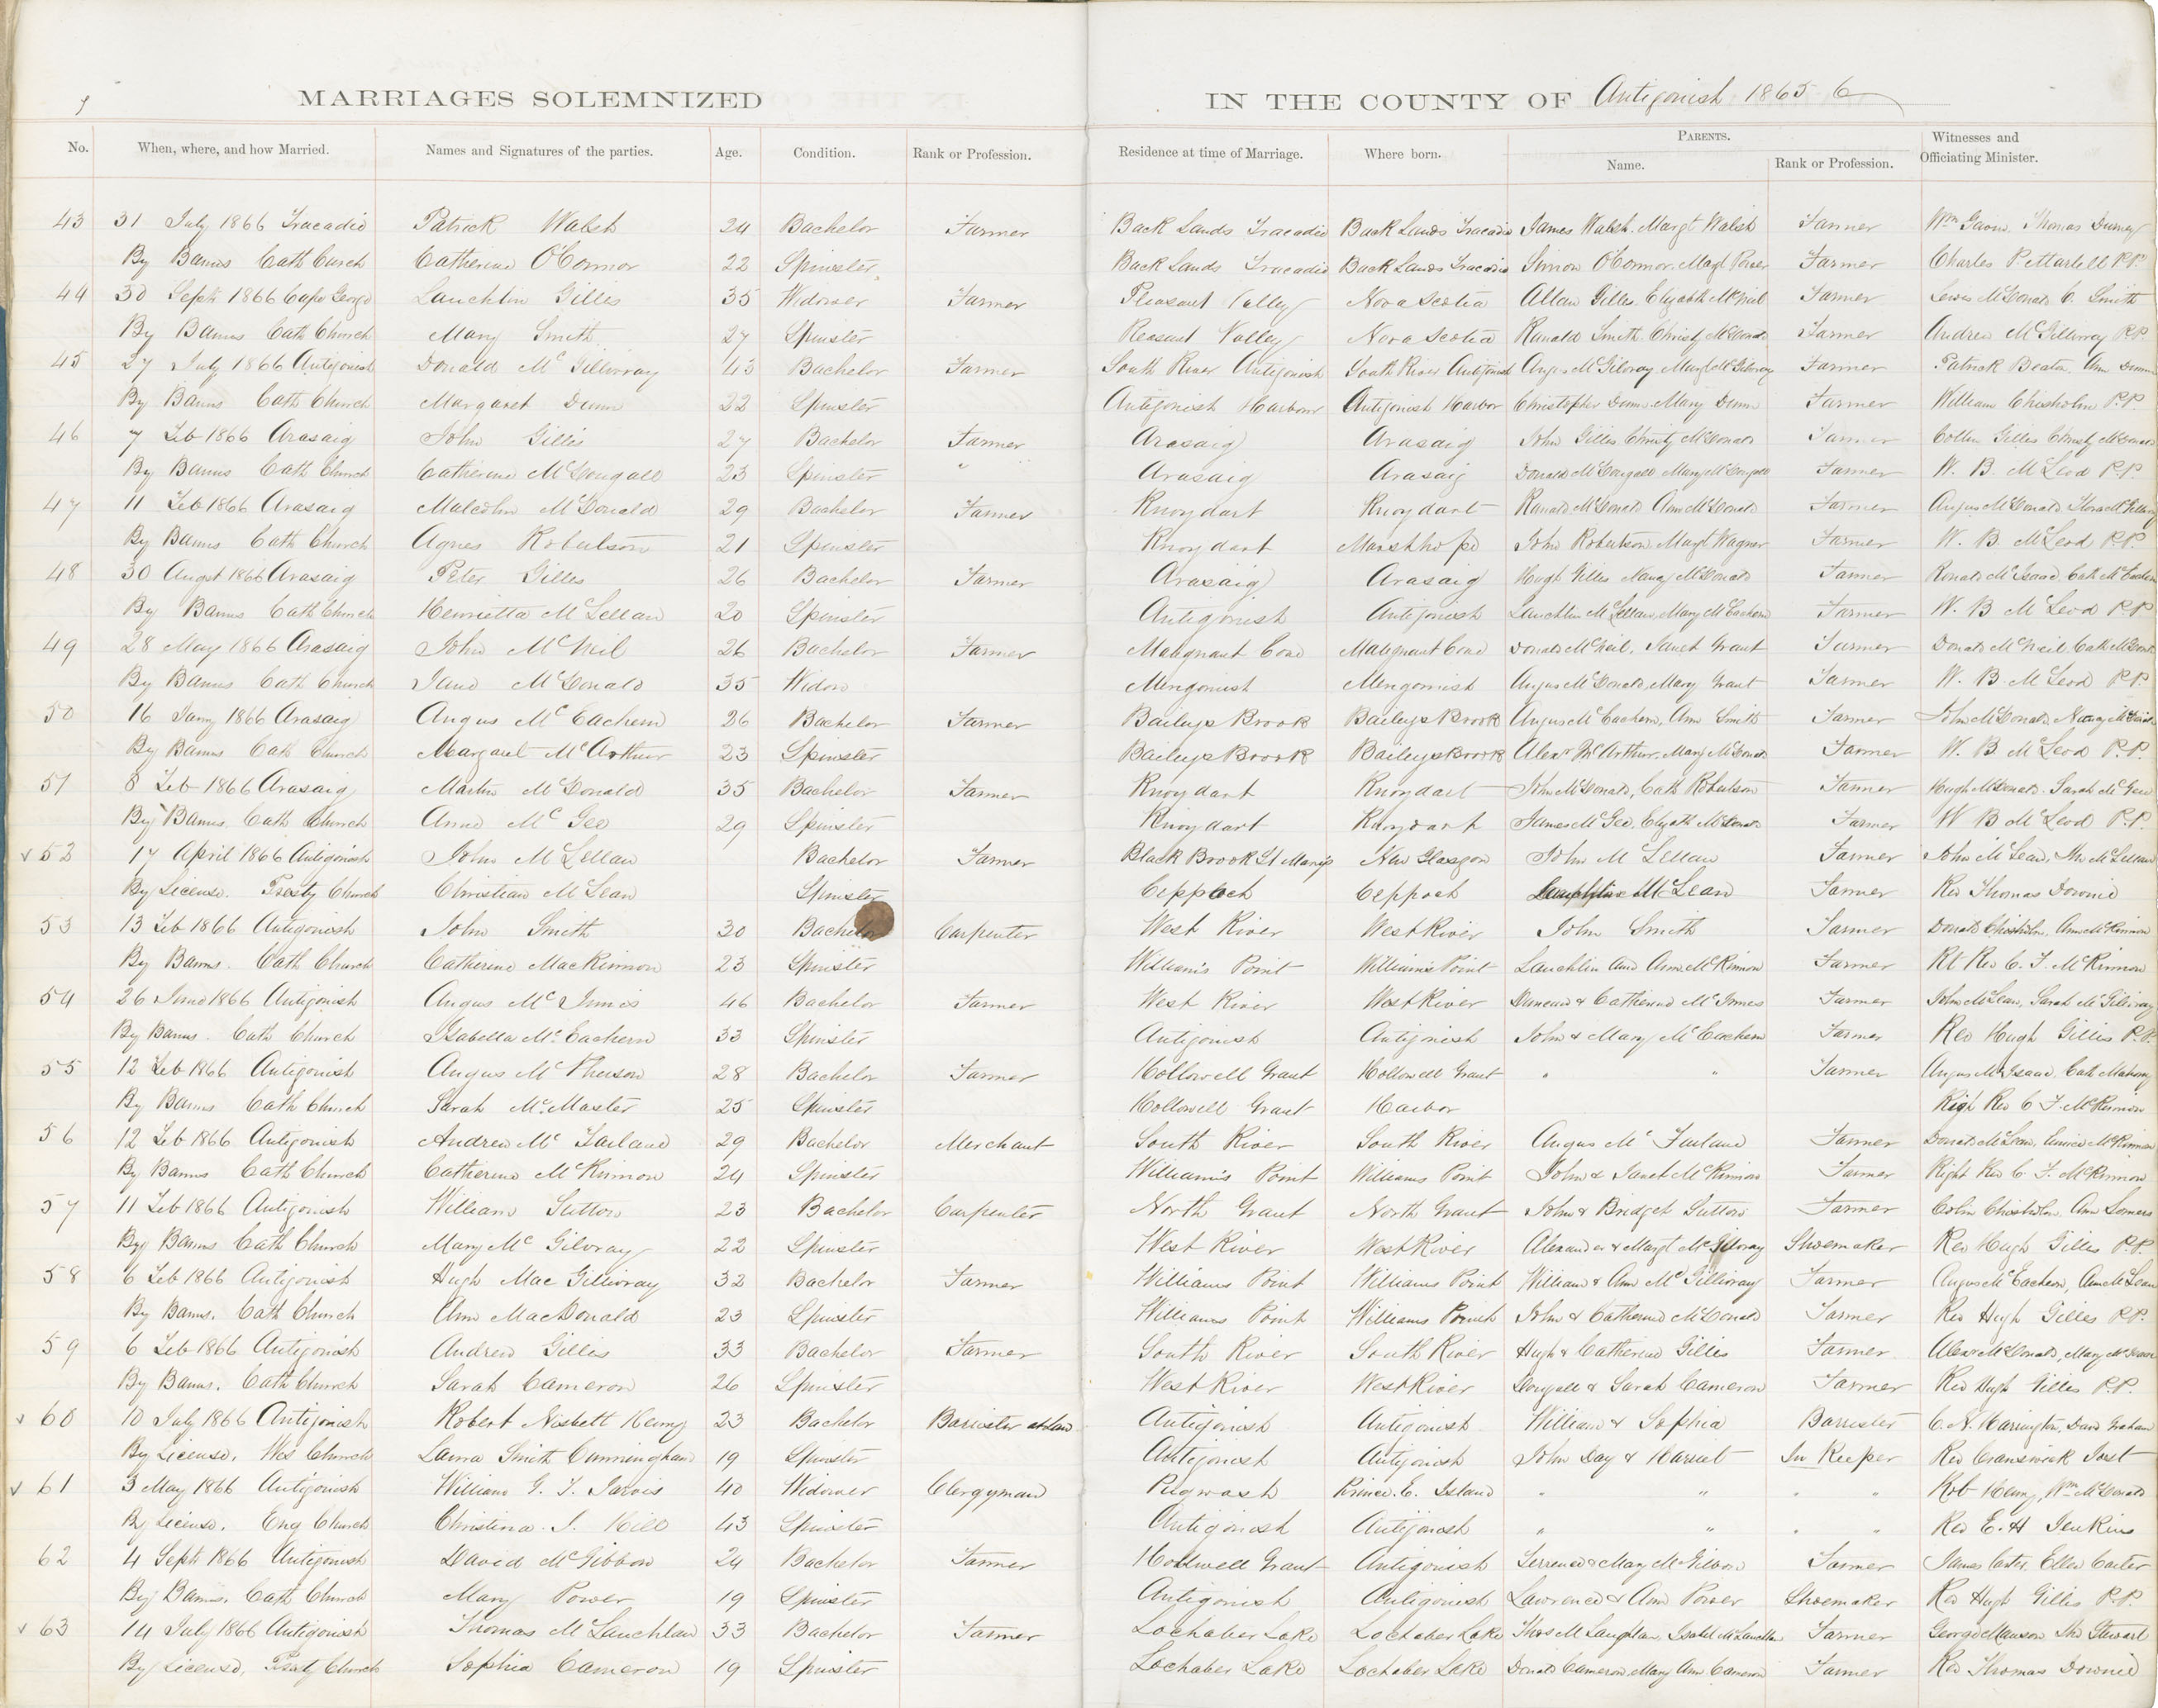 9
MARRIAGES SOLEMNIZED IN THE COUNTY OF Antigonish 1865 6
No. When, where, and how Married. Names and Signatures of the parties. Age. Condition. Rank or Profession. Residence at time of Marriage. Where born. PARENTS. Name. Rank or Profession. Witnesses and Officiating Minister.
43 31 July 1866 Tracadie Patrick Walsh 24 Bachelor Farmer Back Lands Tracadie Back Lands Tracadie James Walsh. Margt Walsh Farmer Wm Thomas
By Banns Cath Curch Catherine O'Connor 22 Spinster Back Lands Tracadie Back Lands Tracadie Simon O'Connor. Magt Power Farmer Charles P.P.
44 30 Sept 1866 Cape George Lauchlin Gillis 35 Widower Farmer Pleasant Valley Nova Scotia Allan Gillis. McNeil Farmer Lewis McDonald C. Smith
By Banns Cath Church Mary Smith 27 Spinster Pleasant Valley Nova Scotia Ranald Smith. Christy McDonald Farmer Andrew McGillivray P.P.
45 27 July 1866 Antigonish Donald McGillivray 43 Bachelor Farmer South River Antigonish South River Antigonish Angus McGilvray Margt McGilvray Farmer Patrick Beaton, Ann Dunn
By Banns Cath Church Margaret Dunn 22 Spinster Antigonish Harbour Antigonish Harbor Christopher Dunn. Mary Dunn Farmer William Chisholm P.P.
46 7 Feb 1866 Arasaig John Gillis 27 Bachelor Farmer Arasaig Arasaig John Gillis Christy McDonald Farmer Gillis Christy McDonald
By Banns Cath Church Catherine McDougall 23 Spinster " Arasaig Arasaig Donald McDougall Mary McDougall Farmer W. B. McLeod P.P.
47 11 Feb 1866 Arasaig Malcolm McDonald 29 Bachelor Farmer Knoydart Knoydart Ranald McDonald Ann McDonald Farmer Angus McDonald
By Banns Cath Church Agnes Robertson 21 Spinster Knoydart Marshhope John Robertson. Magt Wagner Farmer W. B. McLeod P.P.
48 30 Augst 1866 Arasaig Peter Gillis 26 Bachelor Farmer Arasaig Arasaig Hugh Gillis Nancy McDonald Farmer Ronald McIsaac. Cath
By Banns Cath Church Henrietta McLellan 20 Spinster Antigonish Antigonish Lauchlin McLellan, Mary McEachern Farmer W. B McLeod P.P.
49 28 May 1866 Arasaig John McNeil 26 Bachelor Farmer Malignant Cove Malignant Cove Donald McNeil, Janet Grant Farmer Donald McNeil. Cath McDonald
By Banns Cath Church Jane McDonald 35 Widow Merigomish Merigomish Angus McDonald, Mary Grant Farmer W. B. McLeod P.P.
50 16 Jany 1866 Arasaig Angus McEachern 26 Bachelor Farmer Baileys Brook Baileys Brook Angus McEachern, Ann Smith Farmer John McDonald, Nancy
By Banns Cath Church Margaret McArthur 23 Spinster Baileys Brook Baileys Brook Alexr McArthur. Mary McDonald Farmer W. B McLeod P.P.
51 8 Feb 1866 Arasaig Martin McDonald 35 Bachelor Farmer Knoydart Knoydart John McDonald, Cath Robertson Farmer Hugh McDonald. Sarah McGee
By Banns. Cath Church Anne McGee 29 Spinster Knoydart Knoydart James McGee, Elizath McDonald Farmer W B McLeod P.P.
√ 52 17 April 1866 Antigonish John McLellan Bachelor Farmer Black Brook St Marys New Glasgow John McLellan Farmer John McLean, Jno McLellan
By License. Presty Church Christian McLean Spinster Ceppoch Ceppoch Lauchline McLean Farmer Rev Thomas Downie
53 13 Feb 1866 Antigonish John Smith 30 Bachelor Carpenter West River West River John Smith Farmer Donald Chisholm, Ann McKinnon
By Banns. Cath Church Catherine MacKinnon 23 Spinster William's Point William's Point Lauchlin and Ann McKinnon Farmer Rt Rev C. F. McKinnon
54 26 June 1866 Antigonish Angus McInnis 46 Bachelor Farmer West River West River Duncan & Catherine McInnes Farmer John McLean, Sarah McGilvray
By Banns. Cath Church Isabella McEachern 33 Spinster Antigonish Antigonish John & Mary McEachern Farmer Rev Hugh Gillis P.P.
55 12 Feb 1866 Antigonish Angus McPherson 28 Bachelor Farmer Hollowell Grant Hollowell Grant " " Farmer Angus McIsaac, Cath
By Banns Cath Church Sarah McMaster 25 Spinster Hollowell Grant Harbor Righ Rev C F. McKinnon
56 12 Feb 1866 Antigonish Andrew McFarland 29 Bachelor Merchant South River South River Angus McFarland Farmer Donald McLean, McKinnon
By Banns Cath Church Catherine McKinnon 24 Spinster William's Point Williams Point John & Janet McKinnon Farmer Right Rev C. F. McKinnon
57 11 Feb 1866 Antigonish William Sutton 23 Bachelor Carpenter North Grant North Grant John & Bridget Sutton Farmer Colin Chisholm, Ann Somers
By Banns Cath Church Mary McGilvray 22 Spinster West River West River Alexander & Margt McGilvray Shoemaker Rev Hugh Gillis P.P.
58 6 Feb 1866 Antigonish Hugh MacGillivray 32 Bachelor Farmer Williams Point Williams Point William & Ann McGillivray Farmer Angus McEachern, Ann McLean
By Banns. Cath Church Ann MacDonald 23 Spinster Williams Point Williams Point John & Catherine McDonald Farmer Rev Hugh Gilles P.P.
59 6 Feb 1866 Antigonish Andrew Gillis 33 Bachelor Farmer South River South River Hugh & Catherine Gillis Farmer Alexr McDonald, Mary
By Banns. Cath Church Sarah Cameron 26 Spinster West River West River Dougall & Sarah Cameron Farmer Rev Hugh Gillis P.P.
√ 60 10 July 1866 Antigonish Robert Nisbett Henry 23 Bachelor Barrister at Law Antigonish Antigonish William & Sophia Barrister C. N. Harrington, David Graham
By License. Wes Church Laura Smith Cunningham 19 Spinster Antigonish Antigonish John Day & Harriet In Keeper Rev Cranswick Jost
√ 61 3 May 1866 Antigonish William G. T. Jarvis 40 Widower Clergyman Pugwash Prince. E. Island " " " " Rob Henry, Wm McDonald
By License. Eng Church Christina. I. Hill 43 Spinster Antigonish Antigonish " " " " Rev E. H Jenkins
62 4 Sept 1866 Antigonish David McGibbon 24 Bachelor Farmer Hollwell Grant Antigonish Terrence & Mary McGibbon Farmer James Carter, Ellen Carter
By Banns. Cath Church Mary Power 19 Spinster Antigonish Antigonish Lawrence & Ann Power Shoemaker Rev Hugh Gillis P.P.
√ 63 14 July 1866 Antigonish Thomas McLauchlan 33 Bachelor Farmer Lochaber Lake Lochaber Lake Thos McLaughlan, Isabel McLauchlan Farmer George Manson Jno Stewart
By License, Presty Church Sophia Cameron 19 Spinster Lochaber Lake Lochaber Lake Donald Cameron, Mary Ann Cameron Farmer Rev Thomas Downie